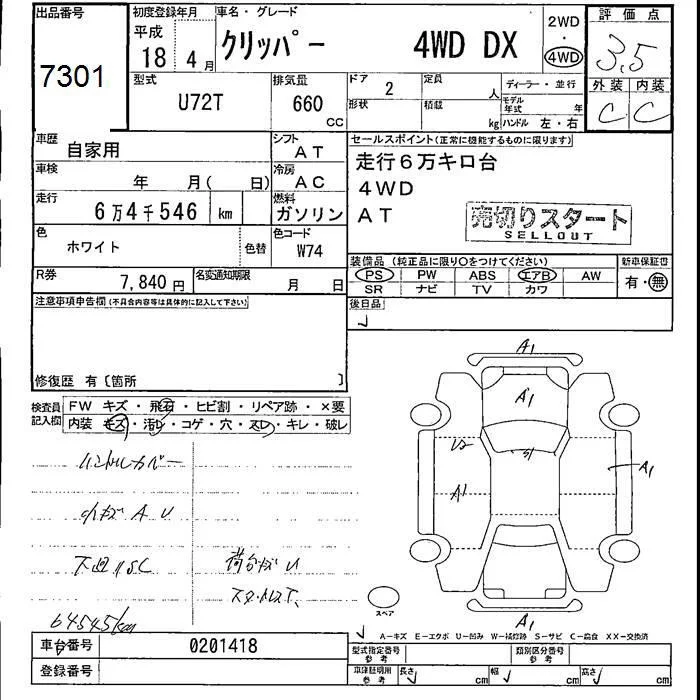 出品番号
7301
初度登録年月
平成
18年 4月
車名・グレード
クリッパー 4WD DX
2WD
・
4WD
評価点
3.5
外装 内装
C C
型式
U72T
排気量
660
CC
ドア
2
形状
定員
人
積載
kg
ディーラー・並行
モデル年式 年
ハンドル 左・右
車歴
自家用
シフト
AT
車検
年 月( 日)
冷房
AC
走行
6万4千546 km
燃料
ガソリン
色
ホワイト
色替
色コード
W74
R券
7,840円
名変通知期限
月 日
セールスポイント(正常に機能するものに限ります)
走行6万キロ台
4WD
AT
売切りスタート
SELLOUT
装備品(純正品に限り○をつけてください)
PS PW ABS エアB AW
SR ナビ TV カワ
新車保証書
有・無
後日品
注意事項申告欄(不具合内容等は具体的に記入して下さい)
修復歴 有〔箇所 〕
検査員記入欄
FW キズ・飛石・ヒビ割・リペア跡・×要
内装 キズ・汚レ・コゲ・穴・スレ・キレ・破レ
ハンドルカバー
小キズ A U
下廻りSC
荷台キズ U
スタットレスT、
64545km
A1
A1
U2
S1
A1
A1
A1
スペア
A－キズ E－エクボ U－凹み W－補修跡 S－サビ C－腐食 XX－交換済
車台番号
0201418
登録番号
型式指定番号
参考
類別区分番号
参考
車庫証明用
参考
長さ cm
幅 cm
高さ cm